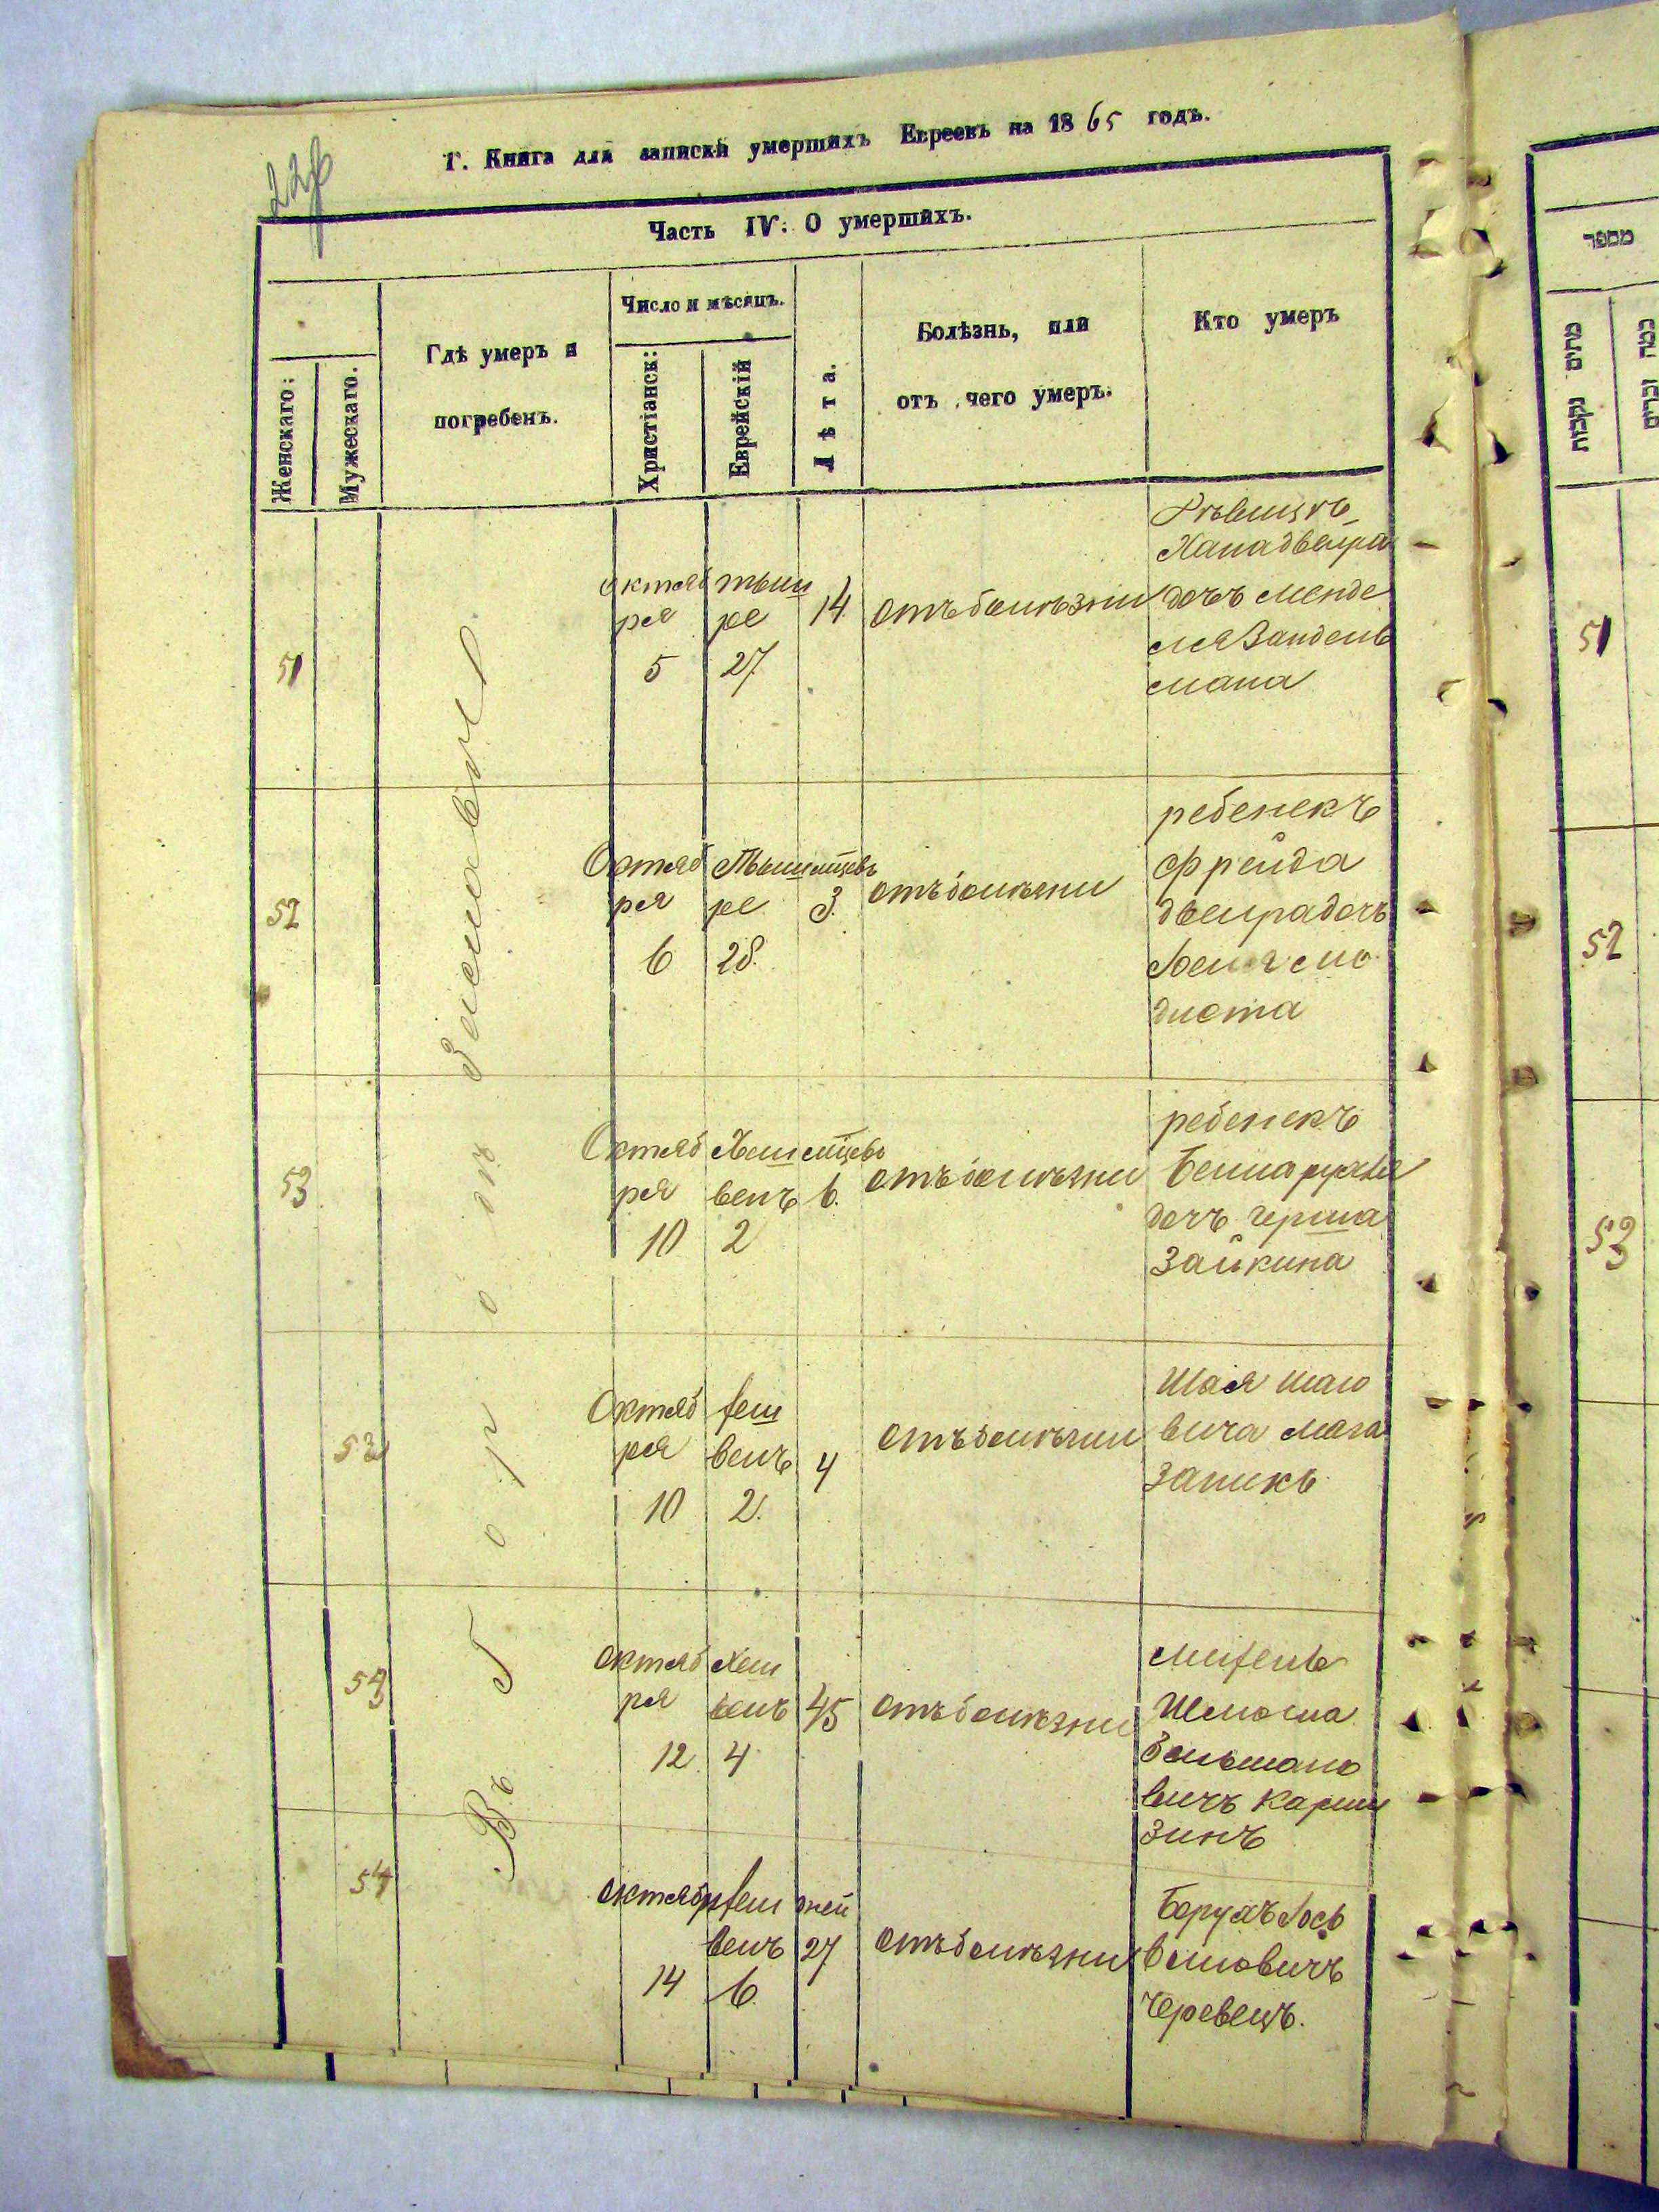 Г. Книга для записки умершихъ Евреевъ на 1865 годъ.
Часть IV: О умершихъ.
Женскаго:
Мужескаго.
Гдѣ умеръ и
погребенъ.
Число и мѣсяцъ.
Христіанск:
Еврейскій
Лѣта.
Болѣзнь, или
отъ чего умеръ.
Кто умеръ
Въ Городѣ Заславлѣ
51
октяб
ря
5
тыш
ре
27
14
отъ болѣзни
Дѣвица
Хана двейра
дочь Менде
ля Зандель
мана
52
Октяб
ря
6
Тыш
ре
28.
мцевъ
3.
отъ болѣзни
ребенекъ
Фрейда
двейра дочь
диста
53
Октяб
ря
10
Хеш
венъ
2
мцевъ
6.
отъ болѣзни
ребенекъ
Бейла рухля
дочъ Герша
Зайкина
52
Октяб
ря
10
хеш
венъ
2.
4
отъ болѣзни
Шая Шаіо
вича Мага
заникъ
53
октяб
ря
12
Хеш
венъ
4
45
отъ болѣзни
житель
Шлиома
Зельмано
вичъ Карли
зинъ
54
октября
14
хеш
венъ
6.
дней
27
отъ болѣзни
Борухъ Іось
велиовичъ
Черевецъ.
מספר
מתים נקבות
כמה זכרים
51
52
53